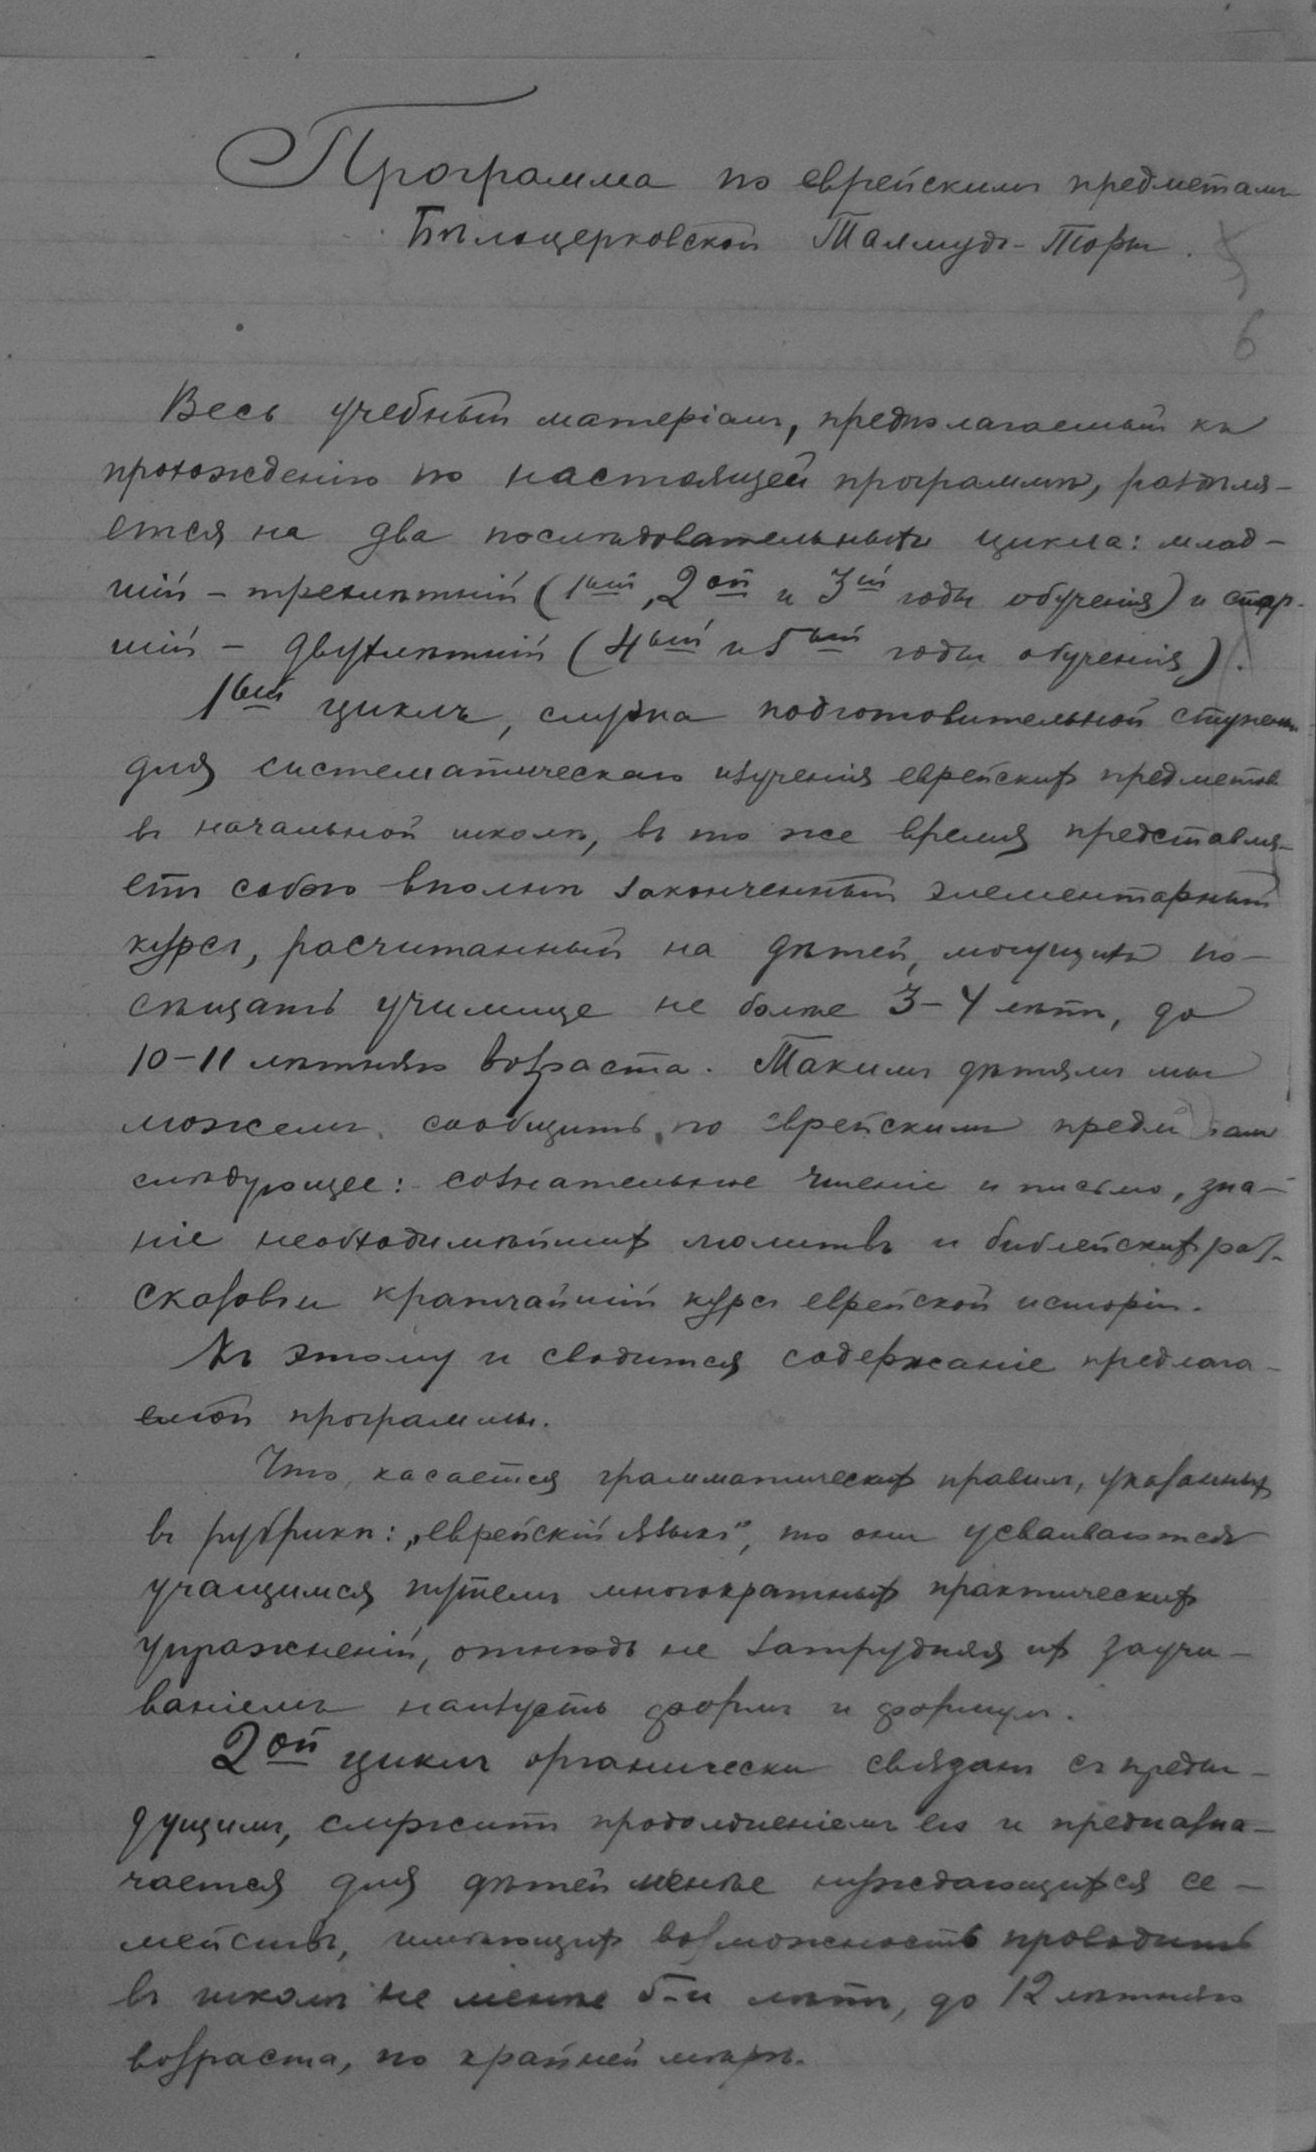 Программа по еврейскимъ предметамъ
Бѣлоцерковской Талмудъ-Торы.
6
Весь учебный матеріалъ, предполагаемый къ
прохожденію по настоящей программѣ, раздѣля-
ется на два послѣдовательныхъ цикла: млад-
шій – трехлѣтній (1ый, 2ой и 3ій годы обученія) и стар-
шій – двухлѣтній (4ый и 5ый годы обученія).
1ый циклъ, служа подготовительной ступенью
для систематическаго изученія еврейскихъ предметовъ
въ начальной школѣ, въ то же время представля-
етъ собою вполнѣ законченный элементарный
курсъ, расчитанный на дѣтей, могущихъ по-
сѣщать училище не болѣе 3-4 лѣтъ, до
10-11 лѣтняго возраста. Такимъ дѣтямъ мы
можемъ сообщить по еврейскимъ предметамъ
слѣдующее: сознательное чтеніе и письмо, зна-
ніе необходимѣйшихъ молитвъ и библейскихъ раз-
сказовъ и кратчайшій курсъ еврейской исторіи.
Къ этому и сводится содержаніе предлага-
емой программы.
Что касается грамматическихъ правилъ, указанныхъ
въ рубрикѣ: „еврейскій языкъ", то они усваиваются
учащимся путемъ многократныхъ практическихъ
упражненій, отнюдь не затрудняя ихъ заучи-
ваніемъ наизусть формъ и формулъ.
2ой циклъ органически связанъ съ преды-
дущимъ, служитъ продолженіемъ его и предназна-
чается для дѣтей менѣе нуждающихся се-
мействъ, имѣющихъ возможность проводить
въ школѣ не менѣе 5-и лѣтъ, до 12 лѣтняго
возраста, по крайней мѣрѣ.